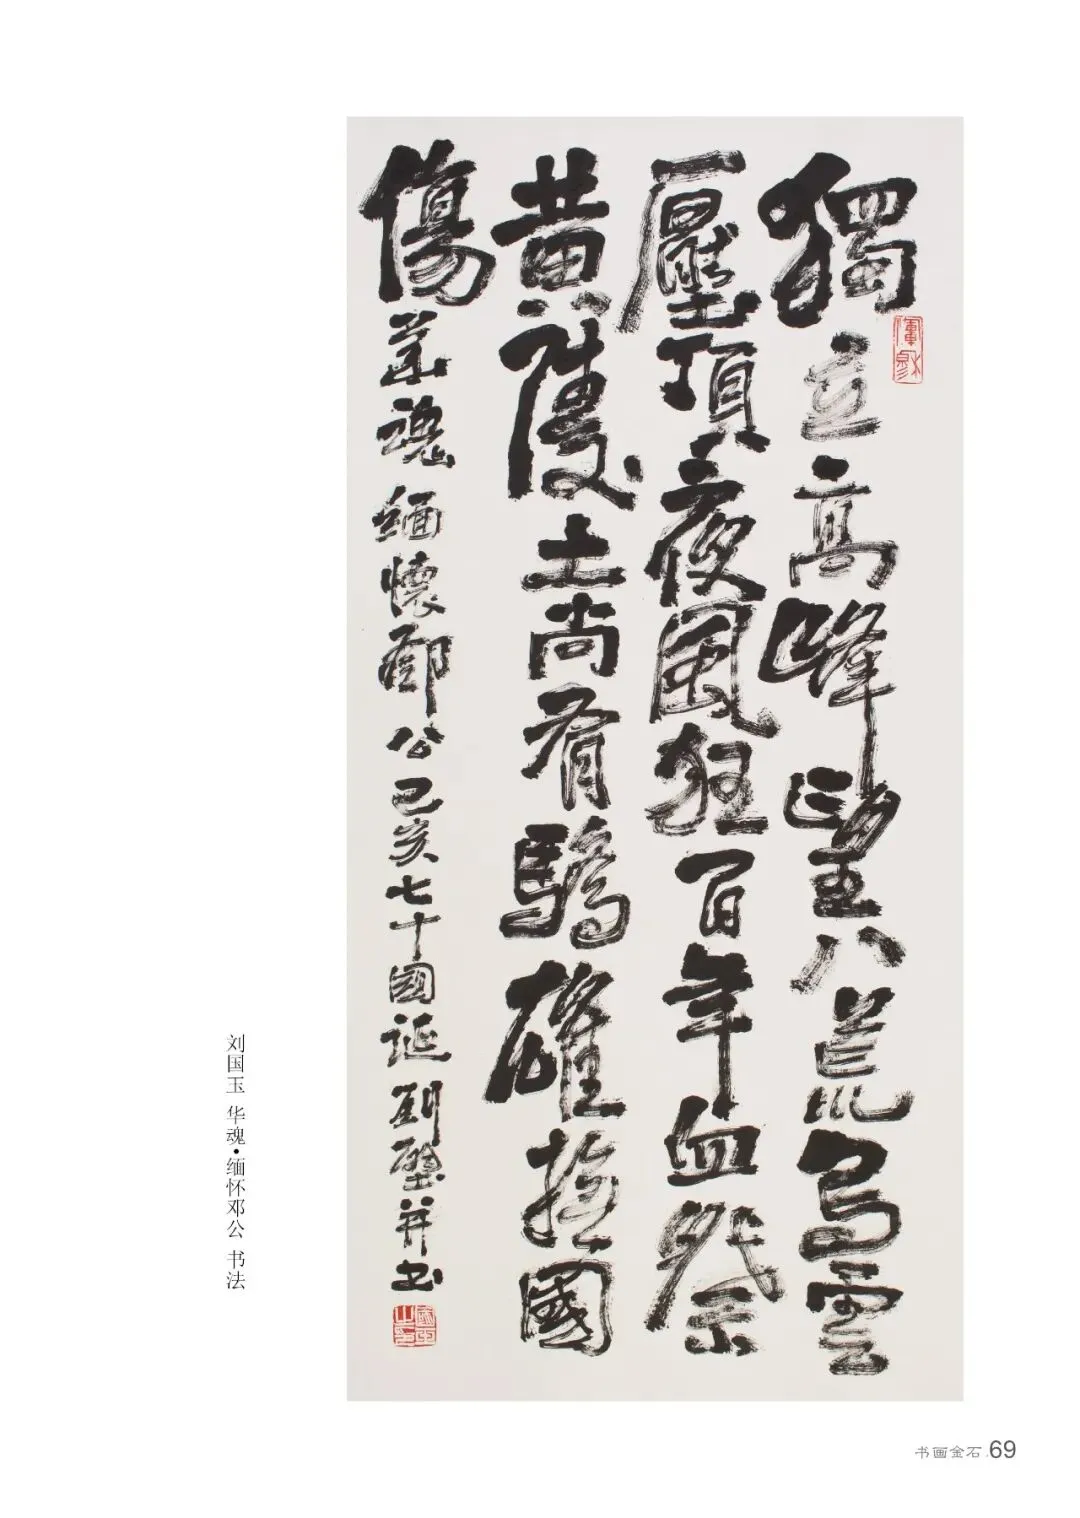 獨立高峰望八荒烏雲
壓頂夜風狂百年血祭
黄陵土尚有驕雄撫國
傷華魂緬懷鄧公己亥七十國誕并书
刘国玉 华魂·缅怀邓公 书法
书画金石.69